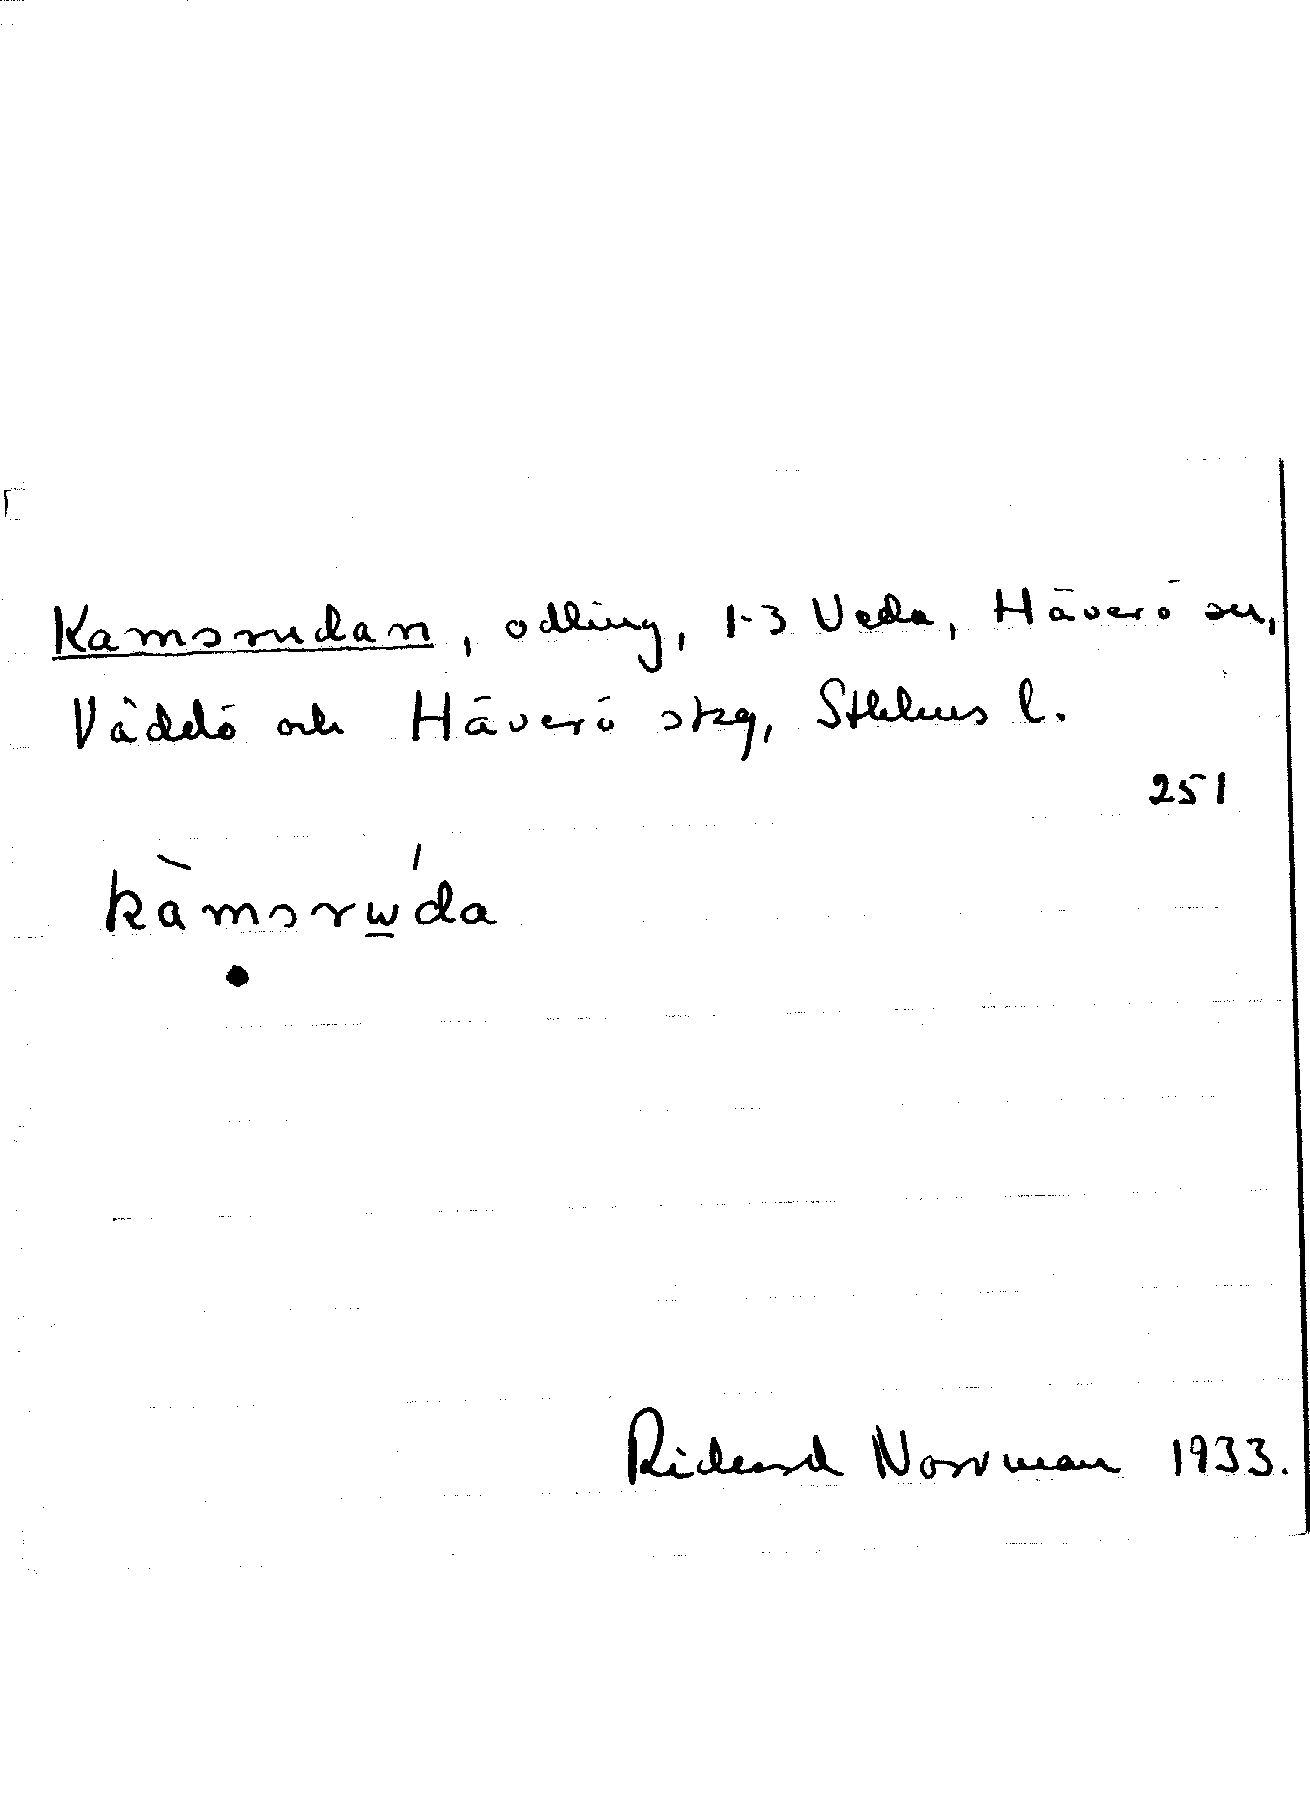 Kamsrudan, odling, 1-3 Veda, Häverö sn,
Väddö och Häverö skg, Sthlms l.
251
kàmsrẃ̲da
Richard Norrman 1933.